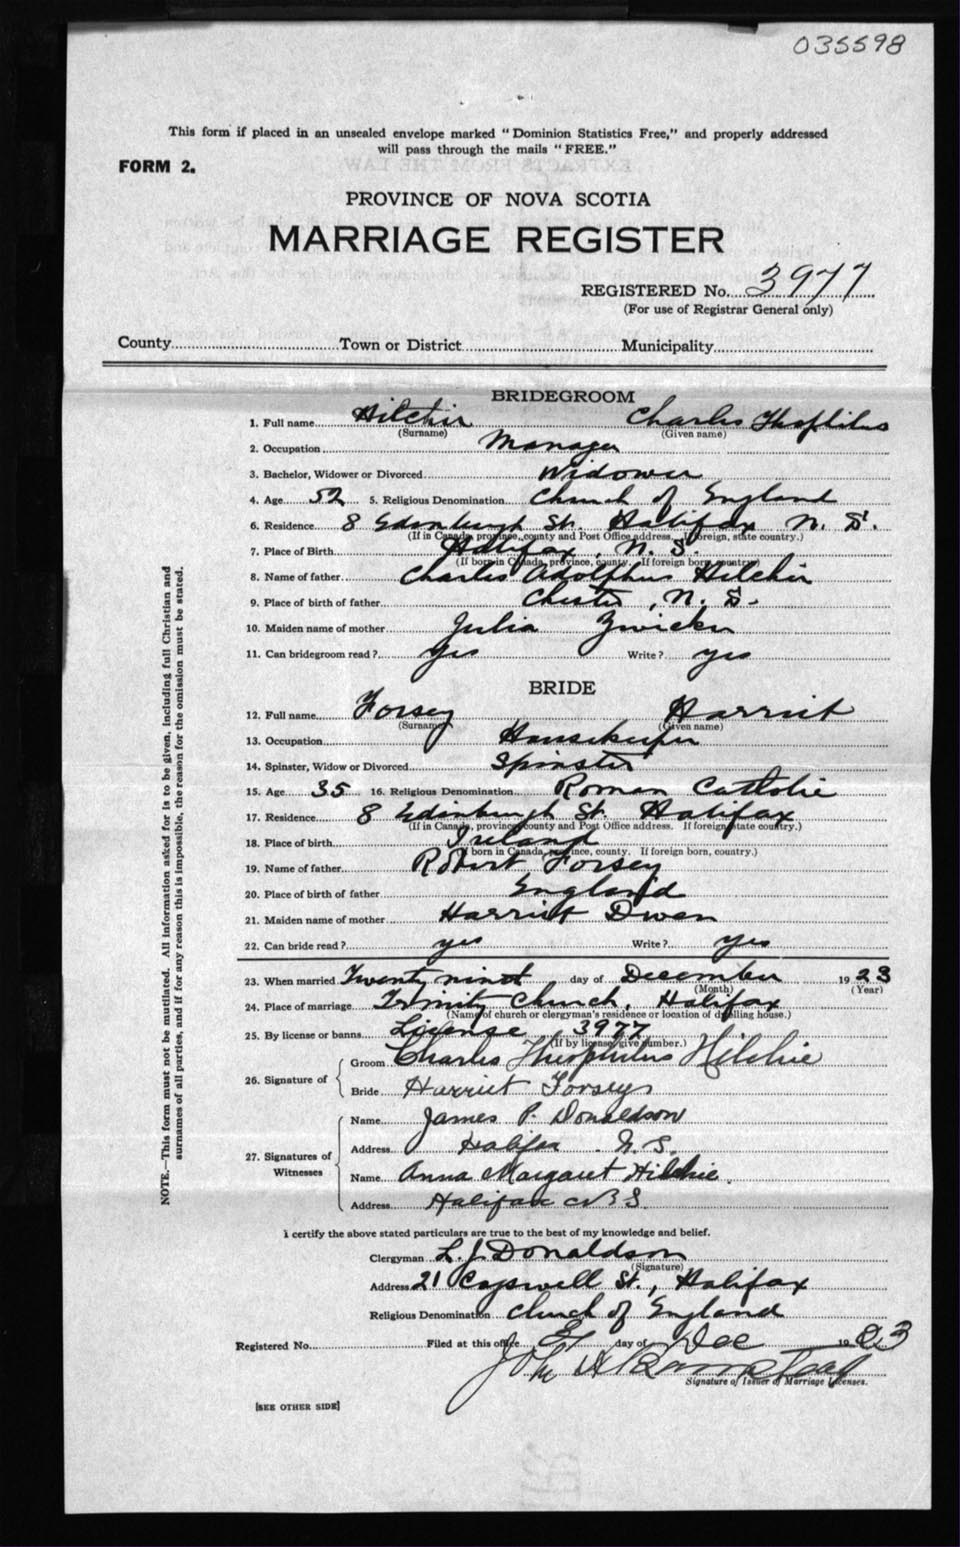 035598
This form if placed in an unsealed envelope marked "Dominion Statistics Free," and properly addressed
will pass through the mails "FREE."
FORM 2.
PROVINCE OF NOVA SCOTIA
MARRIAGE REGISTER
REGISTERED No. 3977
(For use of Registrar General only)
County Town or District Municipality
BRIDEGROOM
1. Full name Hilchie Charles Theophilus
(Surname) (Given name)
2. Occupation Manager
3. Bachelor, Widower or Divorced Widower
4. Age 52 5. Religious Denomination Church of England
6. Residence 8 Edinburgh St. Halifax N. S.
(If in Canada, province, county and Post Office address. If foreign, state country.)
7. Place of Birth Halifax, N. S.
(If born in Canada, province, county. If foreign born, country)
8. Name of father Charles Adolphus Hilchie
9. Place of birth of father Chester, N. S.
10. Maiden name of mother Julia Zwicker
11. Can bridegroom read? yes Write? yes
BRIDE
12. Full name Forsey Harriet
(Surname) (Given name)
13. Occupation Housekeeper
14. Spinster, Widow or Divorced Spinster
15. Age 35 16. Religious Denomination Roman Catholic
17. Residence 8 Edinburgh St. Halifax
(If in Canada, province, county and Post Office address. If foreign, state country.)
18. Place of birth Ireland
(If born in Canada, province, county. If foreign born, country.)
19. Name of father Robert Forsey
20. Place of birth of father England
21. Maiden name of mother Harriet Dwan
22. Can bride read? yes Write? yes
23. When married Twenty ninth day of December 1923
(Month) (Year)
24. Place of marriage Trinity Church, Halifax
(Name of church or clergyman's residence or location of dwelling house.)
25. By license or banns License 3977
(If by license, give number.)
26. Signature of
Groom Charles Theophilus Hilchie
Bride Harriet Forsey
27. Signatures of Witnesses
Name James P. Donaldson
Address Halifax N. S.
Name Anna Margaret Hilchie.
Address Halifax N S.
I certify the above stated particulars are true to the best of my knowledge and belief.
Clergyman L. J. Donaldson
(Signature)
Address 21 Cogswell St., Halifax
Religious Denomination Church of England
Registered No. Filed at this office day of Dec 1923
Signature of Issuer of Marriage Licenses.
[SEE OTHER SIDE]
NOTE.—This form must not be mutilated. All information asked for is to be given, including full Christian and
surnames of all parties, and if for any reason this is impossible, the reason for the omission must be stated.